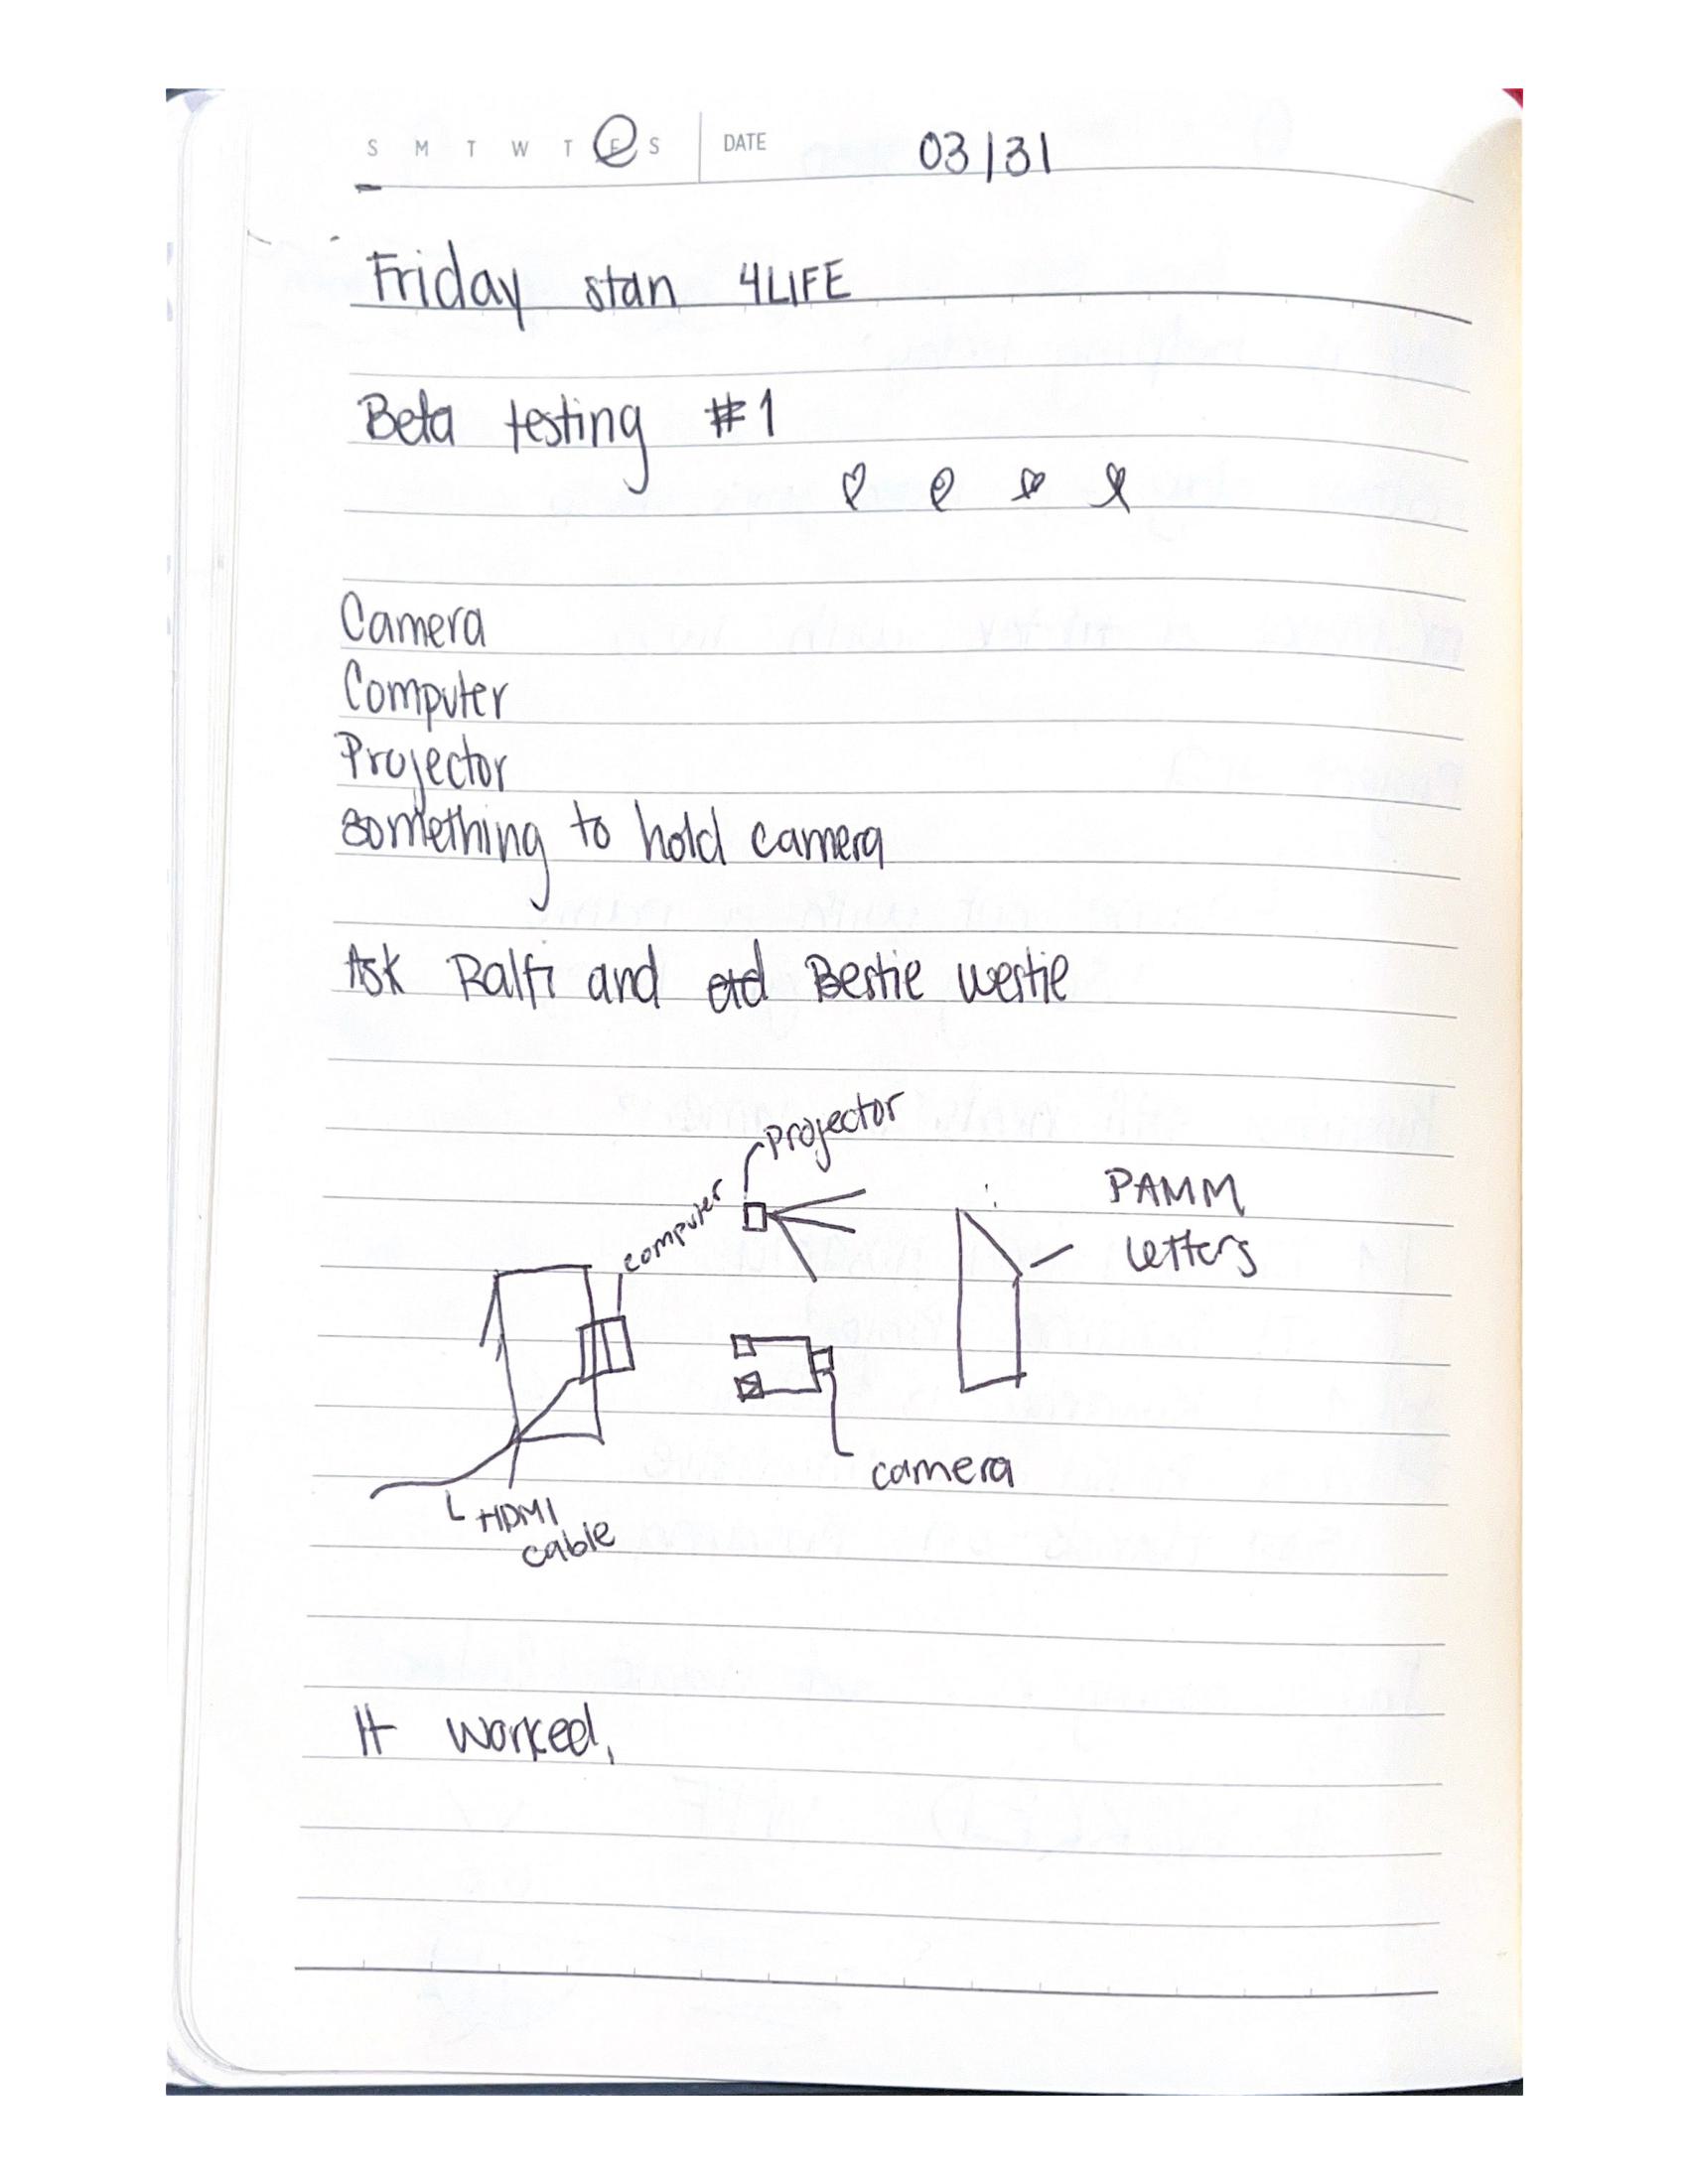 S M T W T F S DATE 03/31
Friday stan 4LIFE
Beta testing #1
Camera
Computer
Projector
something to hold camera
Ask Ralfi and Bestie Westie
projector
computer
PAMM
Letters
camera
HDMI
cable
It worked,